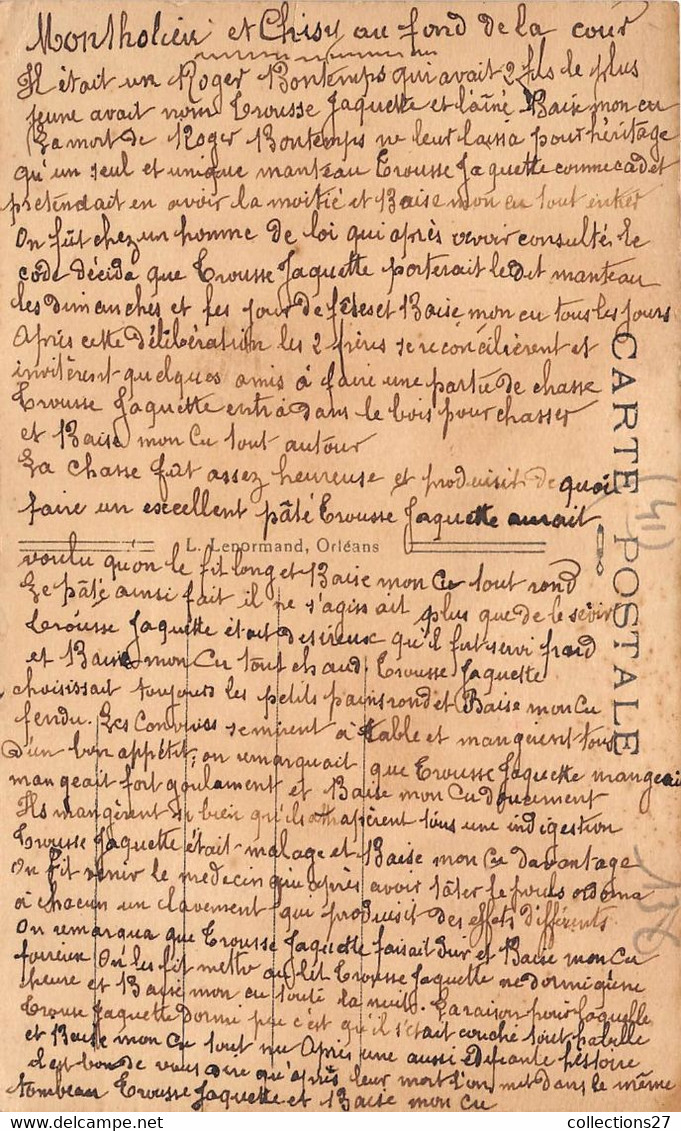 Montholieu et Chisy au fond de la cour
Il était un Roger Bontemps qui avait 2 fils le plus
jeune avait nom Trousse Jaquette et l'aîné Baise mon cu
La mort de Roger Bontemps ne leur laissa pour héritage
qu'un seul et unique manteau Trousse Jaquette comme cadet
prétendait en avoir la moitié et Baise mon cu tout entier
On fût chez un homme de loi qui après avoir consulté le
code décida que Trousse Jaquette porterait le dit manteau
les dimanches et les jour de fêtes et Baise mon cu tous les jours
Après cette délibération les 2 frères se réconcilièrent et
invitèrent quelques amis à faire une partie de chasse
Trousse Jaquette entra dans le bois pour chasser
et Baise mon Cu tout autour
La chasse fût assez heureuse et produisit de quoi
faire un excellent pâté Trousse Jaquette aurait
L. Lenormand, Orléans
voulu qu'on le fit long et Baise mon Cu tout rond
Le pâté ainsi fait il ne s'agissait plus que de le sévir
Trousse Jaquette était désireux qu'il fut servi froid
et Baise mon Cu tout chaud Trousse Jaquette
choisissait toujours les petits pains rond et Baise mon Cu
fendu. Les Convives semirent à table et mangèrent tous
d'un bon appétit, on remarquait que Trousse Jaquette mangeait
mangeait fort goulument et Baise mon Cu doucement
Ils mangèrent si bien qu'ils attrapèrent tous une indigestion
Trousse Jaquette était malage et Baise mon Cu davantage
On fit venir le medecin qui après avoir tâter le pouls ordonna
à chacun un clavement qui produisit des effets différents
On remarqua que Trousse Jaquette faisait dur et Baise mon Cu
foireux On les fit mettre au lit Trousse Jaquette ne dormi guène
cheure et Baise mon cu toute la nuit. La raison pour laquelle
Trousse Jaquette dormi peu c'est qu'il s'était couché tout habillé
et Baise mon Cu tout nu Après une aussi édifiante histoire
il est bon de vous dire qu'après leur mort l'on met dans le même
tombeau Trousse Jaquette et Baise mon cu
CARTE POSTALE
(41)
136
collections27